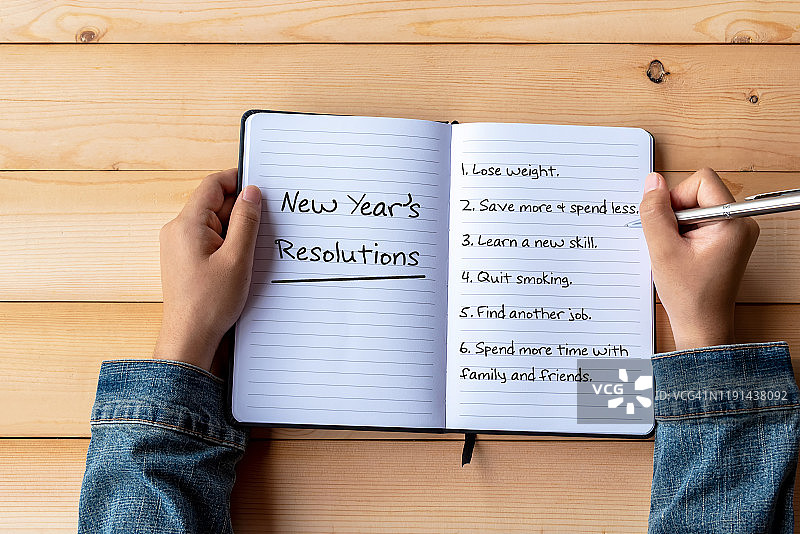 New Year's
Resolutions
1. Lose weight.
2. Save more & spend less.
3. Learn a new skill.
4. Quit smoking.
5. Find another job.
6. Spend more time with
family and friends.
VCG
VCG41N1191438092